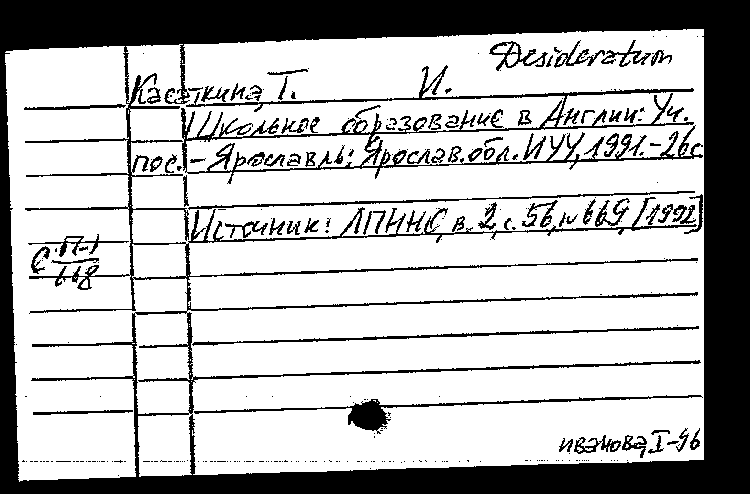 Desideratum
Касаткина, Т. И.
Школьное образование в Англии: Уч.
пос. - Ярославль: Ярослав. обл. ИУУ, 1991. - 26с
Источник: ЛПННС, в. 2, с. 56, № 669, [1992]
С П-1
668
иванова, I-96